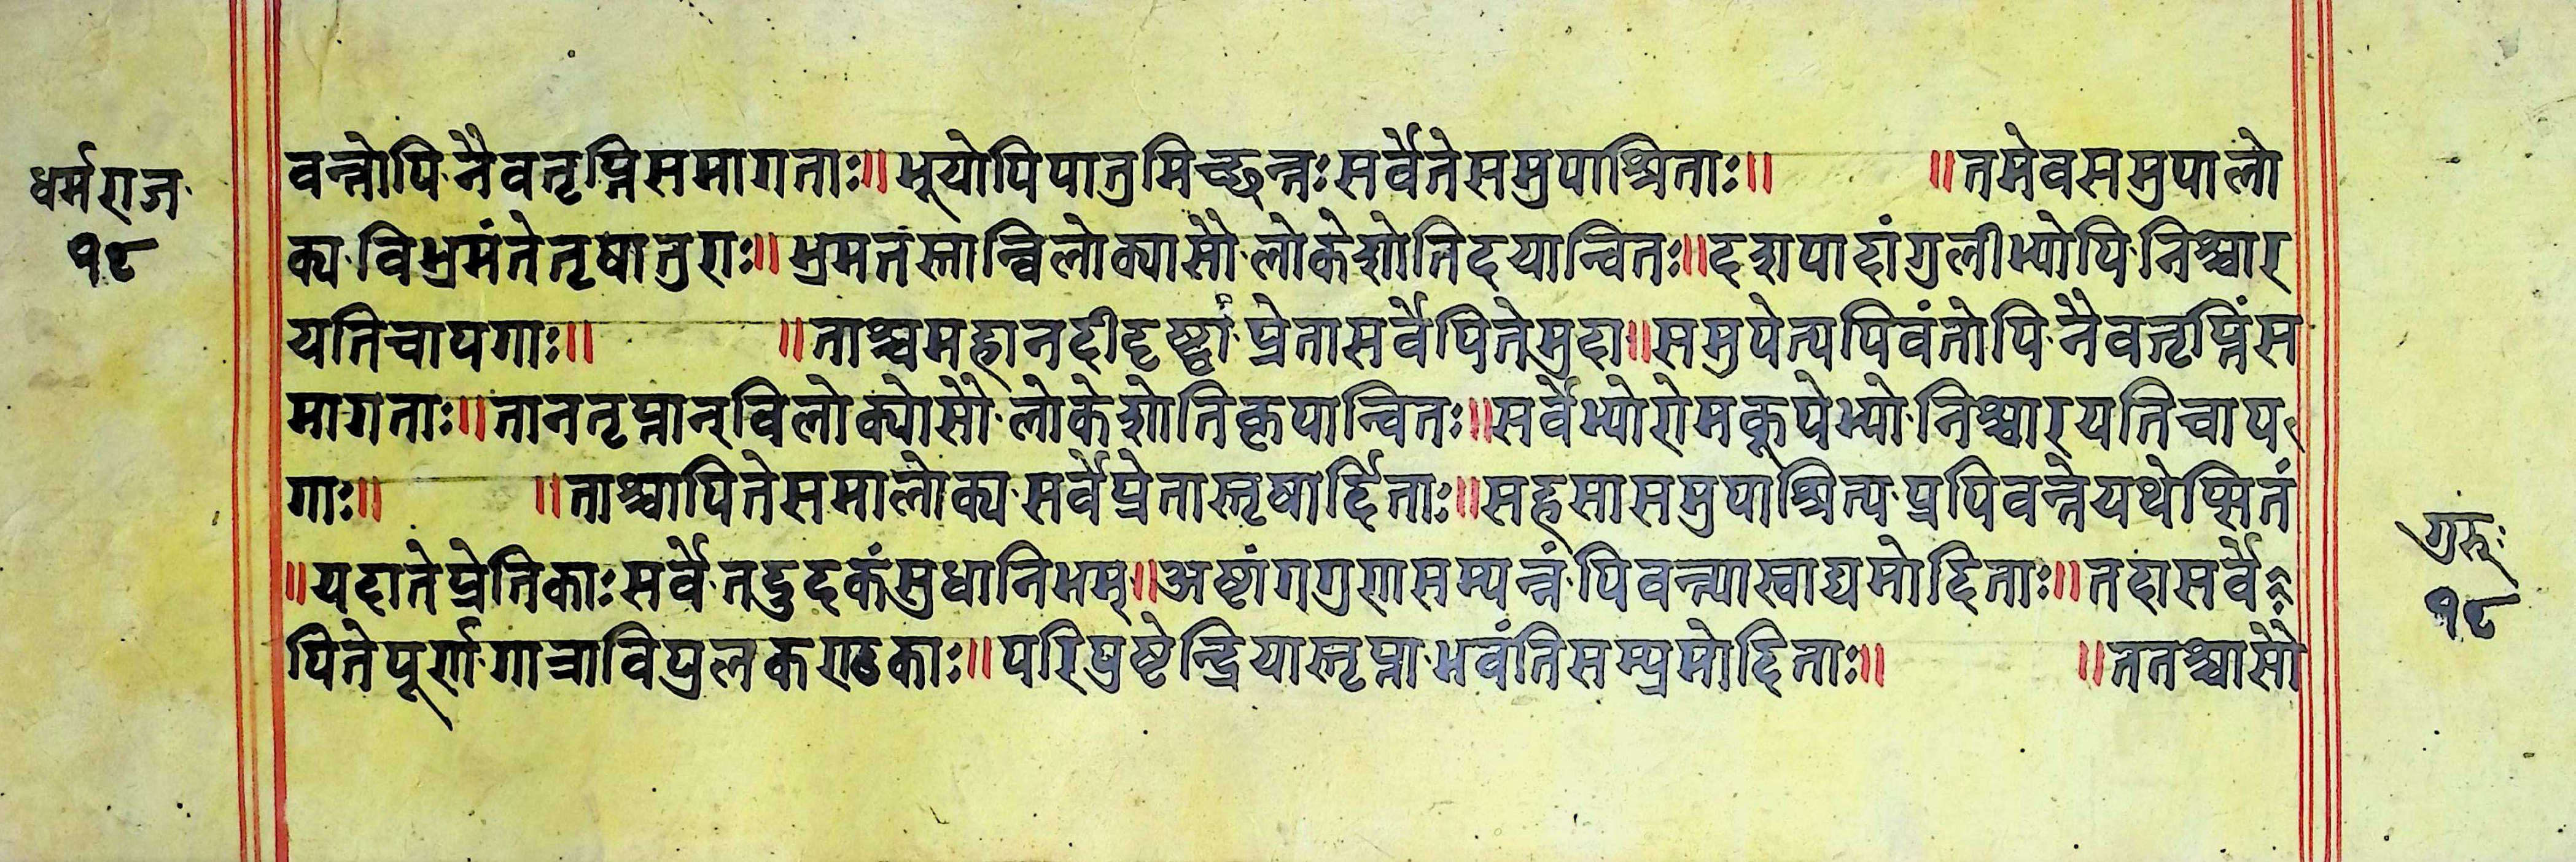 धर्मराज
१८
वन्तोपि नैवतृप्तिसमागताः॥भूयोपिपातुमिच्छन्तःसर्वेतेसमुपाश्रिताः॥ ॥तमेवसमुपालो
क्य विभ्रमंतेतृषातुराः॥भ्रमतंस्तान्विलोक्यासौ लोकेशोतिदयान्वितः॥दशपादांगुलीभ्योपि निश्चार
यतिचापगाः॥ ॥ताश्चमहानदीदृष्ट्वा प्रेतासर्वेपितेमुदा॥समुपेत्यपिवंतोपि नैवतृप्तिंस
मागताः॥तानतृप्तान्विलोक्योसौ लोकेशोतिकृपान्वितः॥सर्वेभ्योरोमकूपेभ्यो निश्चारयतिचाप
गाः॥ ॥ताश्चापितेसमालोक्य सर्वेप्रेतास्तृषार्द्दिताः॥सहसासमुपाश्रित्य प्रपिवन्तेयथेप्सितं
॥यदातेप्रेतिकाःसर्वे तदुदकंसुधानिभम्॥अष्टांगगुणसम्पन्नं पिवन्त्यास्वाद्यमोदिताः॥तदासर्वे
पितेपूर्णगात्राविपुलकण्ठकाः॥परिपुष्टेन्द्रियास्तृप्ता भवंतिसम्प्रमोदिताः॥ ॥ततश्चासौ
गुरुः
१८